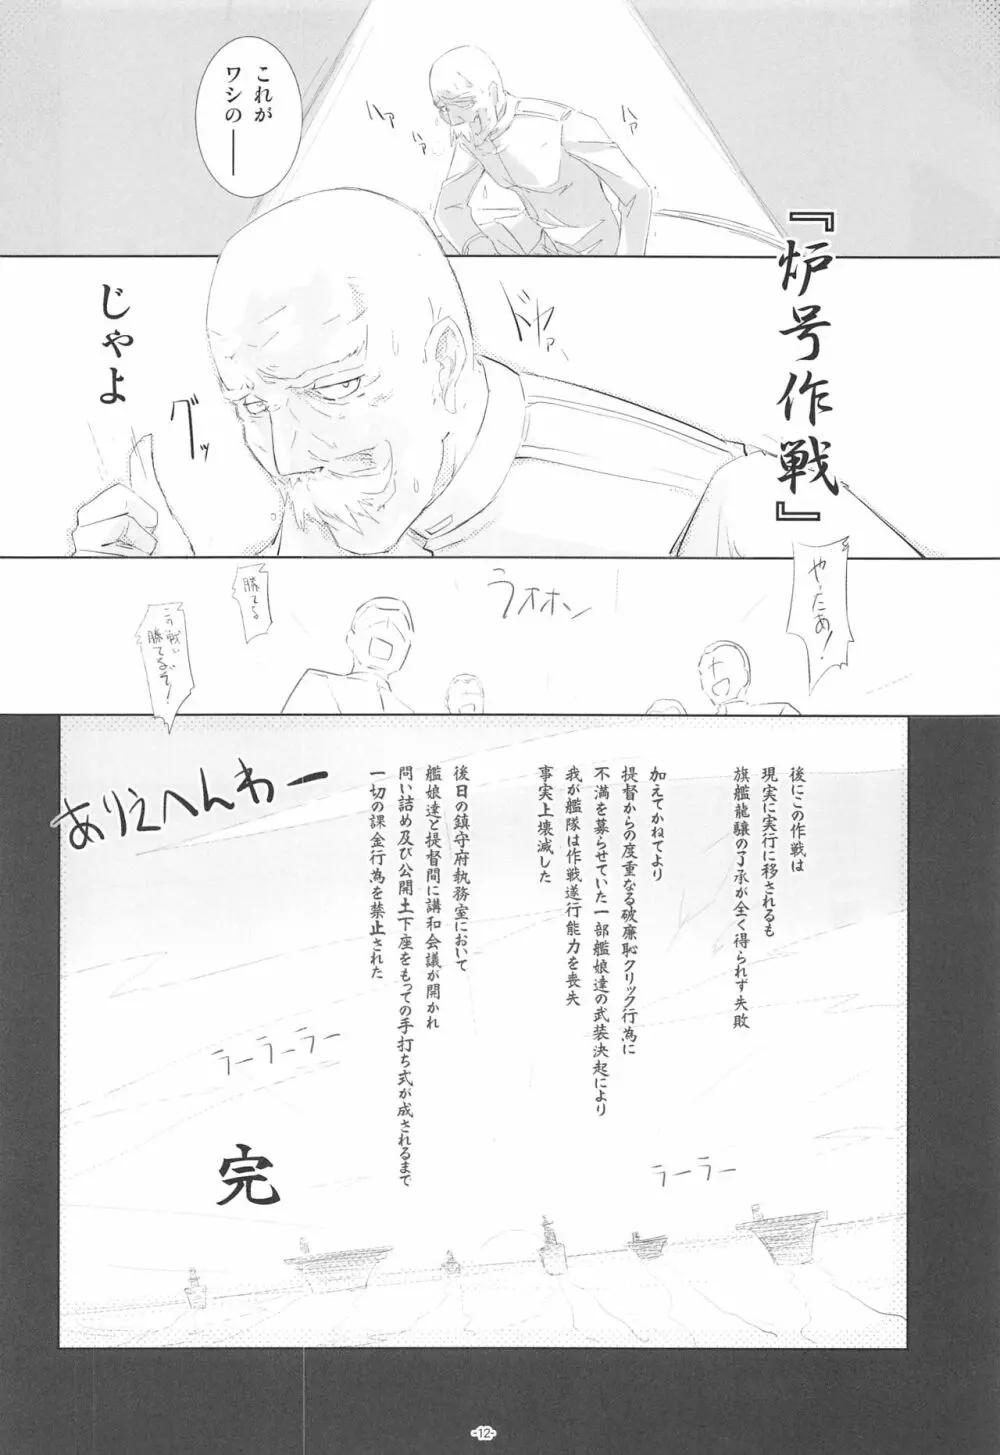 これが
ワシの――
ハァ
ハァ
ハァ
『炉号作戦』
じゃよ
ドヤァ、
グッ
やったあ!
ラオホン
勝てる
この戦い
勝てるぞ!
後にこの作戦は
現実に実行に移されるも
旗艦龍驤の了承が全く得られず失敗
加えてかねてより
提督からの度重なる破廉恥クリック行為に
不満を募らせていた一部艦娘達の武装決起により
我が艦隊は作戦遂行能力を喪失
事実上壊滅した
後日の鎮守府執務室において
艦娘達と提督間に講和会議が開かれ
問い詰め及び公開土下座をもっての手打ち式が成されるまで
一切の課金行為を禁止された
ありえへんわー
ラーラーラー
ラーラー
完
-12-